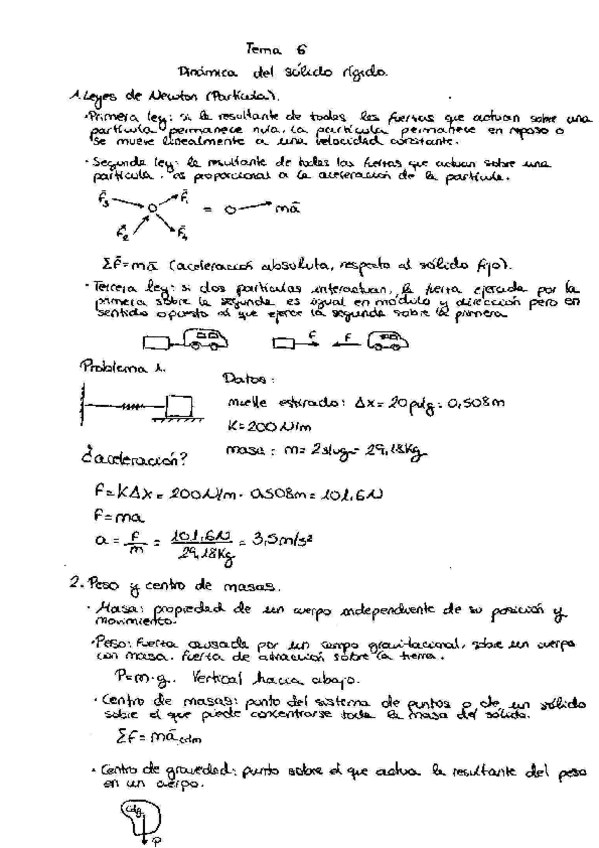 Tema 6
Dinámica del sólido rígido.
1. Leyes de Newton (Partícula).
· Primera ley: si la resultante de todas las fuerzas que actuan sobre una
partícula permanece nula, la partícula permanece en reposo o
se mueve linealmente a una velocidad constante.
· Segunda ley: la resultante de todas las fuerzas que actuan sobre una
partícula, es proporcional a la aceleración de la partícula.
F̄₃ F̄₁ F̄₂ F̄₄ = mā
ΣF̄=mā (aceleración absoluta, respecto al sólido fijo).
· Tercera ley: si dos partículas interactuan, la fuerza ejercida por la
primera sobre la segunda es igual en módulo y dirección pero en
sentido opuesto al que ejerce la segunda sobre la primera
F F
Problema 1.
Datos:
muelle estirado: Δx=20pulg=0,508m
K=200N/m
masa: m=2slug=29,18Kg
¿aceleración?
F=KΔx=200N/m·0,508m=101,6N
F=ma
a = F/m = 101,6N/29,18Kg = 3,5m/s²
2. Peso y centro de masas.
· Masa: propiedad de un cuerpo independiente de su posición y
movimiento.
· Peso: Fuerza causada por un campo gravitacional, sobre un cuerpo
con masa. Fuerza de atracción sobre la tierra.
P=m·g. Vertical hacia abajo.
· Centro de masas: punto del sistema de puntos o de un sólido
sobre el que puede concentrarse toda la masa del sólido.
ΣF=mā cdm
· Centro de gravedad: punto sobre el que actua la resultante del peso
en un cuerpo.
cdg
P